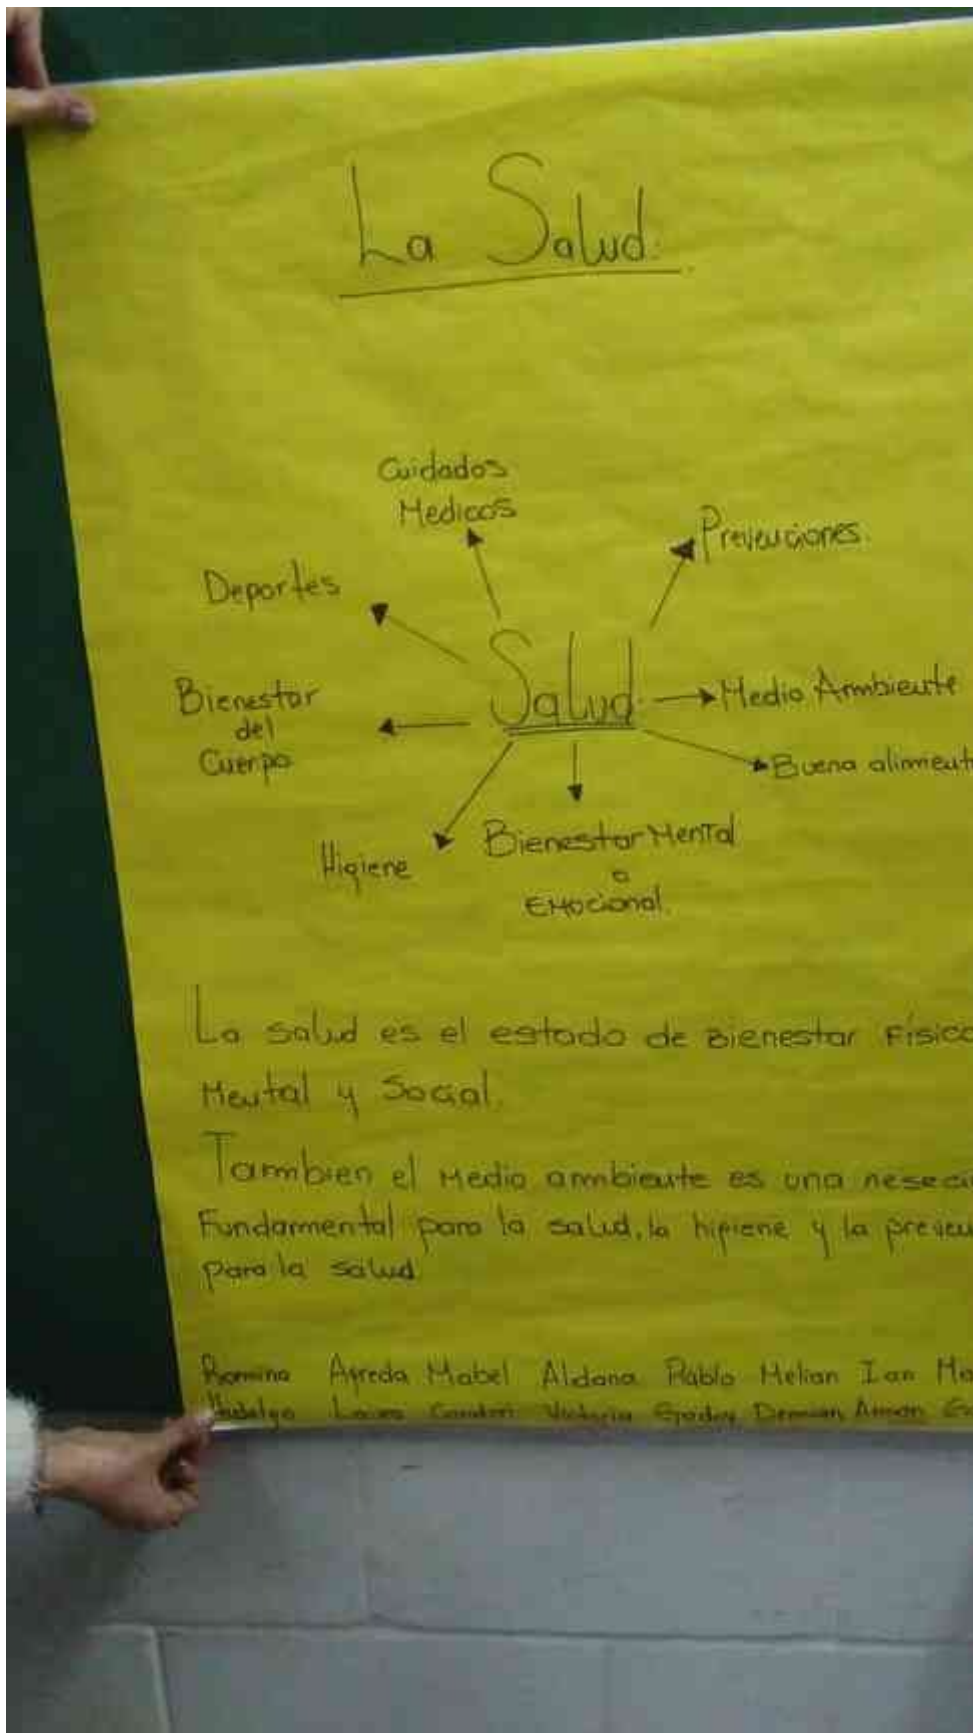 La Salud.
Cuidados
Medicos
Prevenciones.
Deportes
Salud
Bienestar
del
Cuerpo
Medio Ambiente
Buena aliment
Higiene
Bienestar Mental
o
Emocional.
La salud es el estado de Bienestar Físico
Mental y Social.
Tambien el Medio ambiente es una neseci
Fundamental para la salud, la higiene y la preven
para la salud.
Romina Ayreda Mabel Aldana Pablo Melian Ian Ma
Hidalgo Victoria Godoy Demian